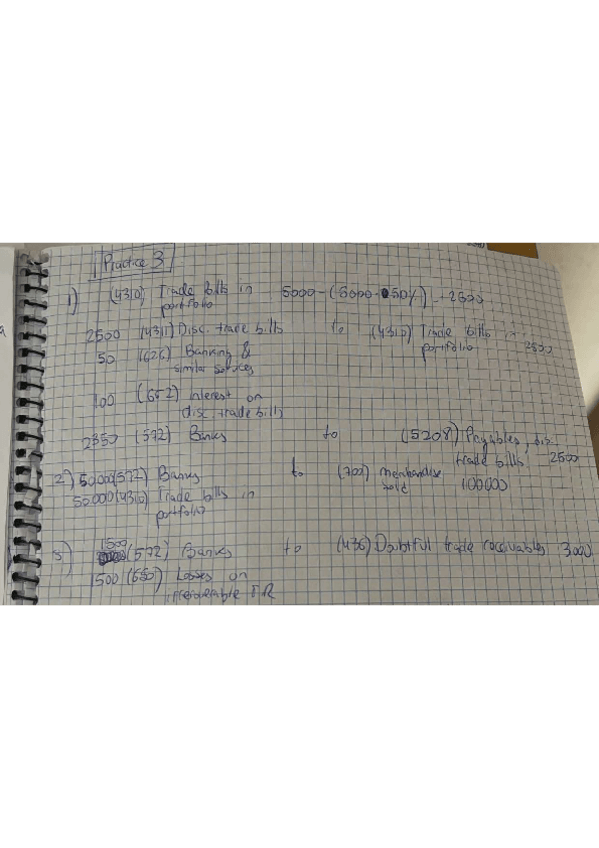 Practice 3
1) (4310) Trade bills in 5000-(5000·50%) = 2500
portfolio
2500 (4311) Disc. trade bills to (4310) Trade bills in
portfolio 2500
50 (626) Banking &
similar services
100 (652) Interest on
disc. trade bills
2350 (572) Banks to (5208) Payables, dis.
trade bills 2500
2) 50.000 (572) Banks to (700) merchandise
sold 100000
50.000 (4310) Trade bills in
portfolio
1500
(572) Banks to (436) Doubtful trade receivables 3000
1500 (650) Losses on
irrecoverable TR